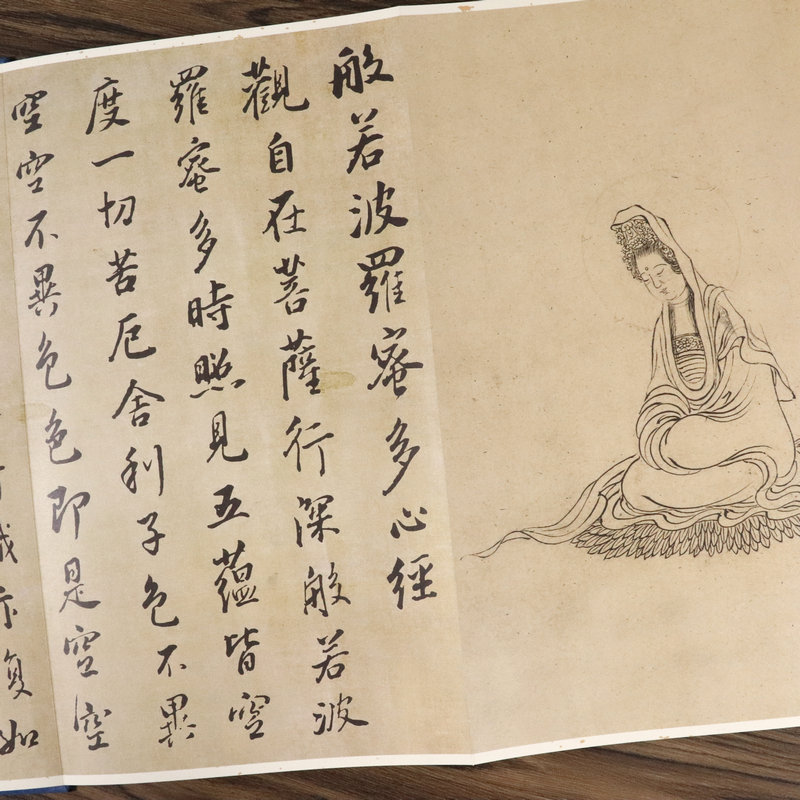 般若波羅蜜多心經
觀自在菩薩行深般若波
羅蜜多時照見五蘊皆空
度一切苦厄舍利子色不異
空空不異色色即是空空
亦復如